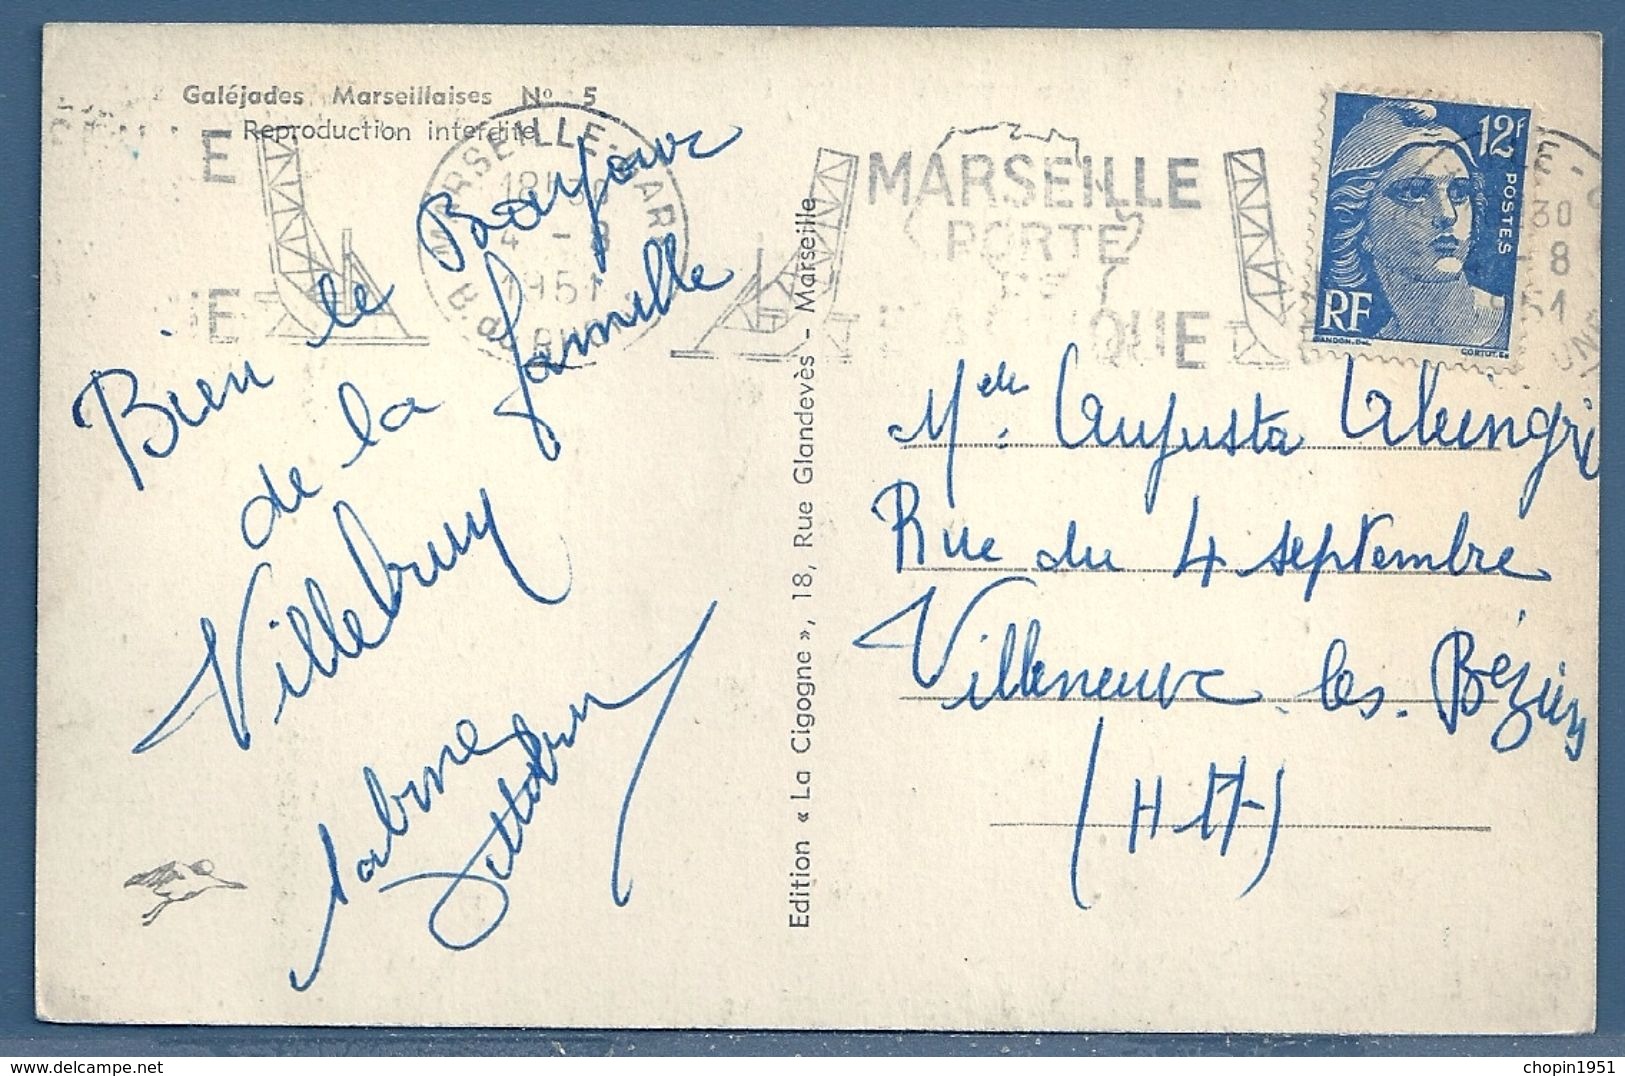 Galéjades Marseillaises Nº 5
Reproduction interdite
Bien le Bonjour
de la famille
Villebrun
Edition « La Cigogne », 18, Rue Glandevès - Marseille
MARSEILLE-GARE
18H30
4 - 8
1951
MARSEILLE
PORTE
QUE
E
E
12F
POSTES
RF
GANDON.DEL
CORTOT.SC
30
- 8
51
Melle. Augusta
Rue du 4 septembre
Villeneuve. les. Béziers
(H
chopin1951